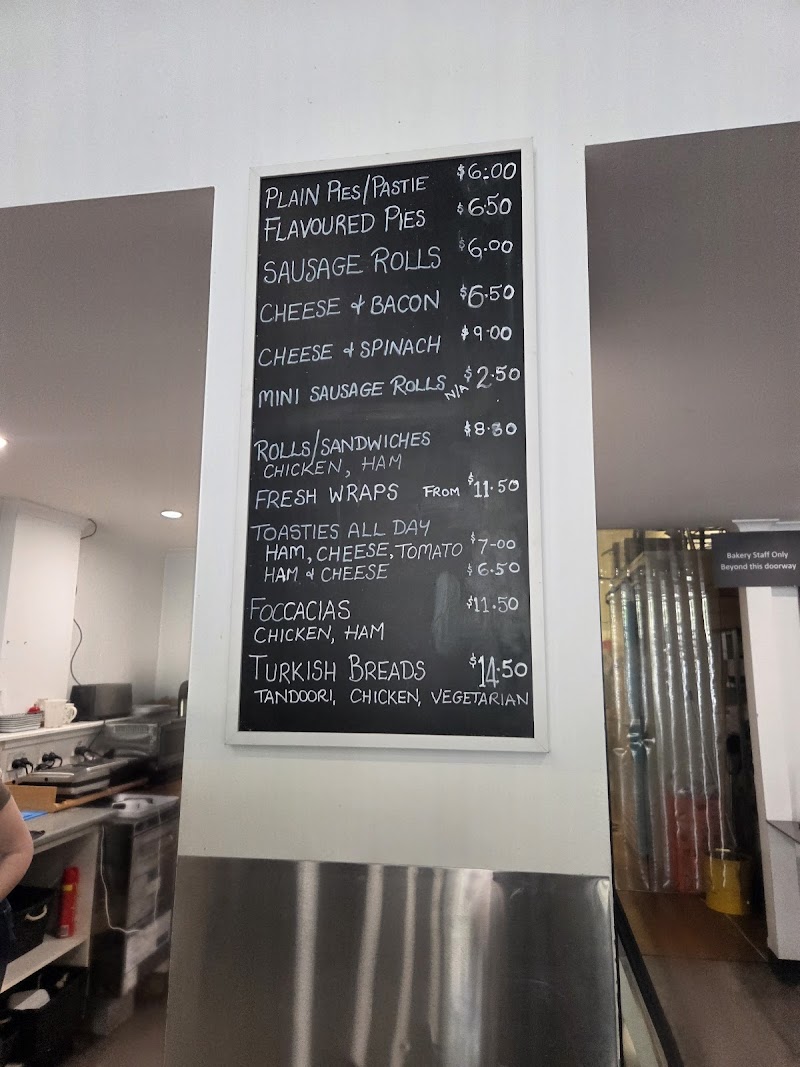 PLAIN PIES/PASTIE $6.00
FLAVOURED PIES $6.50
SAUSAGE ROLLS $6.00
CHEESE & BACON $6.50
CHEESE & SPINACH $9.00
MINI SAUSAGE ROLLS N/A $2.50
ROLLS/SANDWICHES $8.80
CHICKEN, HAM
FRESH WRAPS FROM $11.50
TOASTIES ALL DAY
HAM, CHEESE, TOMATO $7-00
HAM & CHEESE $6.50
FOCCACIAS $11.50
CHICKEN, HAM
TURKISH BREADS $14.50
TANDOORI, CHICKEN, VEGETARIAN
Bakery Staff Only
Beyond this doorway